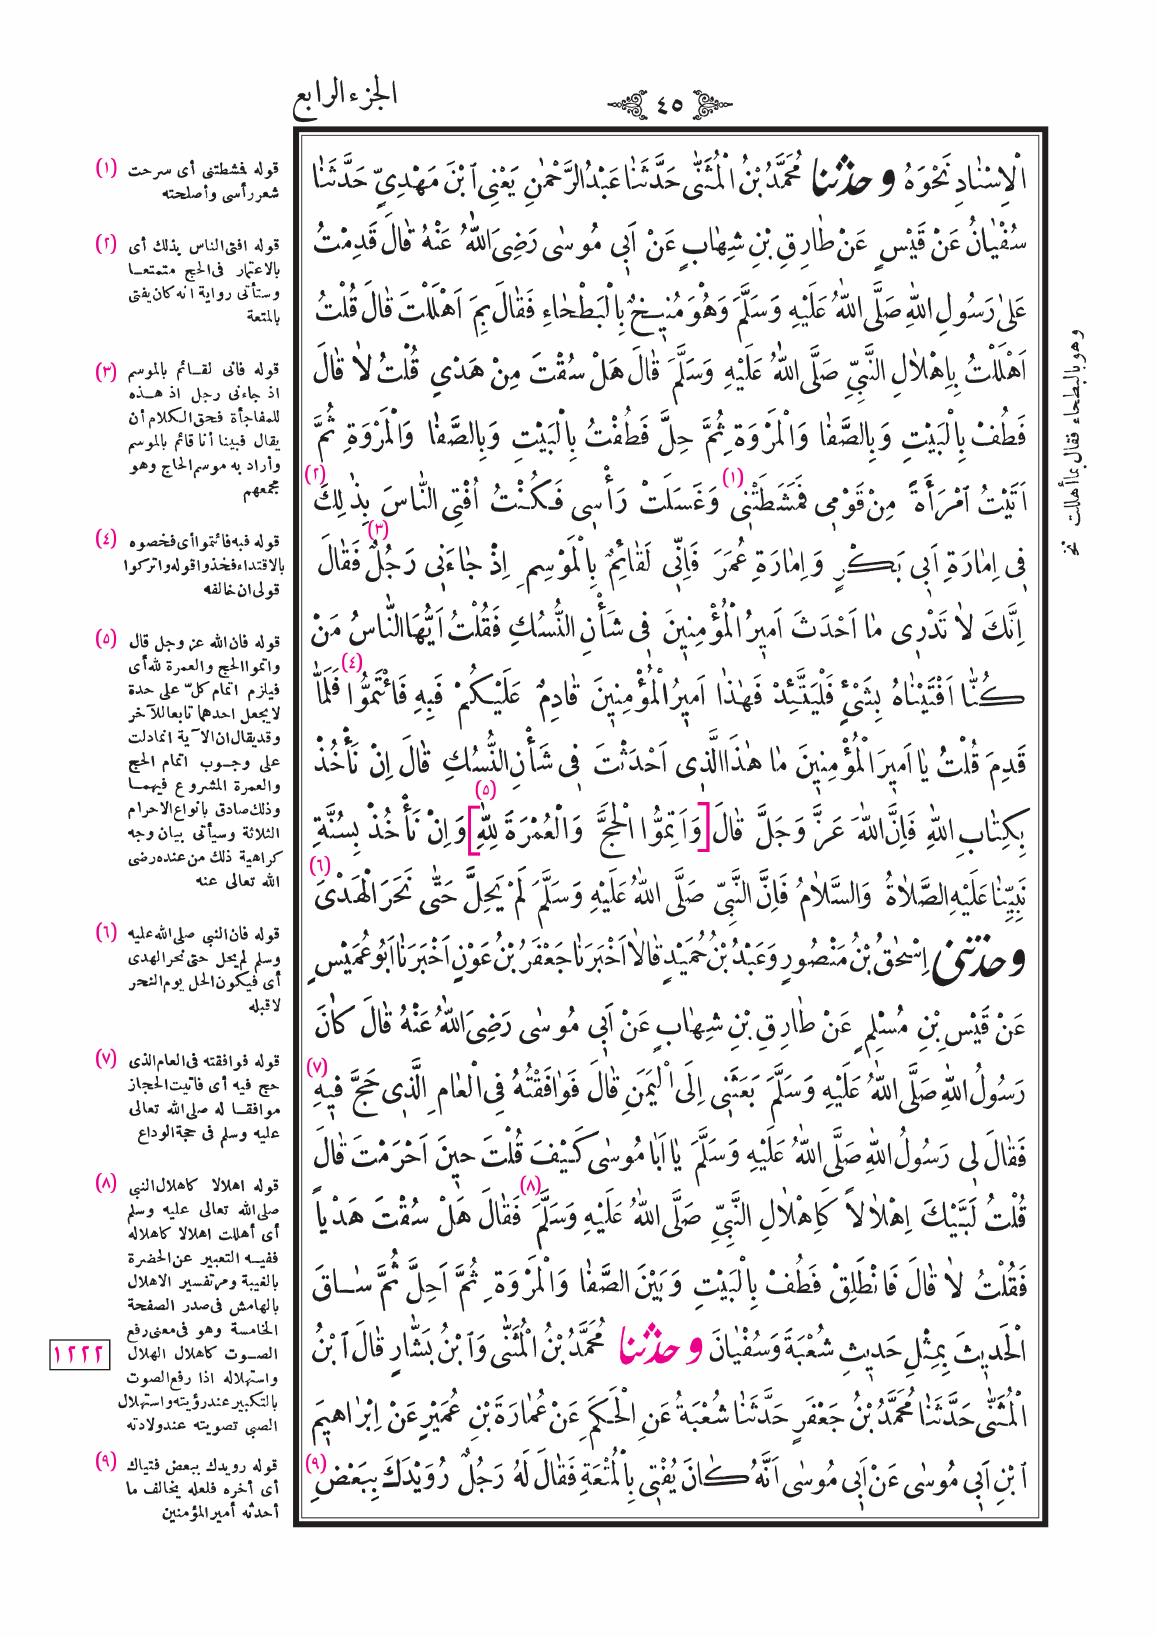 الجزء الرابع
٤٥
الْاِسْنَادِ نَحْوَهُ وحدثنا مُحَمَّدُ بْنُ الْمُثَنّٰى حَدَّثَنَا عَبْدُ الرَّحْمٰنِ يَعْنِى ٱبْنَ مَهْدِيٍّ حَدَّثَنَا
سُفْيَانُ عَنْ قَيْسٍ عَنْ طَارِقِ بْنِ شِهَابٍ عَنْ اَبِي مُوسٰى رَضِىَ اللّٰهُ عَنْهُ قَالَ قَدِمْتُ
عَلٰى رَسُولِ اللّٰهِ صَلَّى اللّٰهُ عَلَيْهِ وَسَلَّمَ وَهُوَ مُنِيخٌ بِالْبَطْحَاءِ فَقَالَ بِمَ اَهْلَلْتَ قَالَ قُلْتُ
اَهْلَلْتُ بِاِهْلَالِ النَّبِيِّ صَلَّى اللّٰهُ عَلَيْهِ وَسَلَّمَ قَالَ هَلْ سُقْتَ مِنْ هَدْيٍ قُلْتُ لَا قَالَ
فَطُفْ بِالْبَيْتِ وَبِالصَّفَا وَالْمَرْوَةِ ثُمَّ حِلَّ فَطُفْتُ بِالْبَيْتِ وَبِالصَّفَا وَالْمَرْوَةِ ثُمَّ
اَتَيْتُ ٱمْرَأَةً مِنْ قَوْمِى فَمَشَطَتْنِى (١) وَغَسَلَتْ رَأْسِى فَكُنْتُ اُفْتِى النَّاسَ بِذٰلِكَ (٢)
فِى اِمَارَةِ اَبِى بَكْرٍ وَاِمَارَةِ عُمَرَ فَاِنِّى لَقَائِمٌ بِالْمَوْسِمِ اِذْ جَاءَنِى رَجُلٌ (٣) فَقَالَ
اِنَّكَ لَا تَدْرِى مَا اَحْدَثَ اَمِيرُ الْمُؤْمِنِينَ فِى شَأْنِ النُّسُكِ فَقُلْتُ اَيُّهَا النَّاسُ مَنْ
كُنَّا اَفْتَيْنَاهُ بِشَىْءٍ فَلْيَتَّئِدْ فَهٰذَا اَمِيرُ الْمُؤْمِنِينَ قَادِمٌ عَلَيْكُمْ فَبِهِ فَائْتَمُّوا (٤) فَلَمَّا
قَدِمَ قُلْتُ يَا اَمِيرَ الْمُؤْمِنِينَ مَا هٰذَا الَّذِى اَحْدَثْتَ فِى شَأْنِ النُّسُكِ قَالَ اِنْ نَأْخُذْ
بِكِتَابِ اللّٰهِ فَاِنَّ اللّٰهَ عَزَّ وَجَلَّ قَالَ [وَاَتِمُّوا الْحَجَّ وَالْعُمْرَةَ لِلّٰهِ] (٥) وَاِنْ نَأْخُذْ بِسُنَّةِ
نَبِيِّنَا عَلَيْهِ الصَّلَاةُ وَالسَّلَامُ فَاِنَّ النَّبِيَّ صَلَّى اللّٰهُ عَلَيْهِ وَسَلَّمَ لَمْ يَحِلَّ حَتّٰى نَحَرَ الْهَدْىَ (٦)
وحدثنى اِسْحٰقُ بْنُ مَنْصُورٍ وَعَبْدُ بْنُ حُمَيْدٍ قَالَا اَخْبَرَنَا جَعْفَرُ بْنُ عَوْنٍ اَخْبَرَنَا اَبُو عُمَيْسٍ
عَنْ قَيْسِ بْنِ مُسْلِمٍ عَنْ طَارِقِ بْنِ شِهَابٍ عَنْ اَبِى مُوسٰى رَضِىَ اللّٰهُ عَنْهُ قَالَ كَانَ
رَسُولُ اللّٰهِ صَلَّى اللّٰهُ عَلَيْهِ وَسَلَّمَ بَعَثَنِى اِلَى الْيَمَنِ قَالَ فَوَافَقْتُهُ فِى الْعَامِ الَّذِى حَجَّ فِيهِ (٧)
فَقَالَ لِى رَسُولُ اللّٰهِ صَلَّى اللّٰهُ عَلَيْهِ وَسَلَّمَ يَا اَبَا مُوسٰى كَيْفَ قُلْتَ حِينَ اَحْرَمْتَ قَالَ
قُلْتُ لَبَّيْكَ اِهْلَالاً كَاِهْلَالِ النَّبِيِّ صَلَّى اللّٰهُ عَلَيْهِ وَسَلَّمَ (٨) فَقَالَ هَلْ سُقْتَ هَدْياً
فَقُلْتُ لَا قَالَ فَانْطَلِقْ فَطُفْ بِالْبَيْتِ وَبَيْنَ الصَّفَا وَالْمَرْوَةِ ثُمَّ اَحِلَّ ثُمَّ سَاقَ
الْحَدِيثَ بِمِثْلِ حَدِيثِ شُعْبَةَ وَسُفْيَانَ وحدثنا مُحَمَّدُ بْنُ الْمُثَنّٰى وَٱبْنُ بَشَّارٍ قَالَ ٱبْنُ
الْمُثَنّٰى حَدَّثَنَا مُحَمَّدُ بْنُ جَعْفَرٍ حَدَّثَنَا شُعْبَةُ عَنِ الْحَكَمِ عَنْ عُمَارَةَ بْنِ عُمَيْرٍ عَنْ اِبْرَاهِيمَ
ٱبْنِ اَبِى مُوسٰى عَنْ اَبِى مُوسٰى اَنَّهُ كَانَ يُفْتِى بِالْمُتْعَةِ فَقَالَ لَهُ رَجُلٌ رُوَيْدَكَ بِبَعْضِ (٩)
وهو بالبطحاء فقال بما أهللت نخ
(١) قوله فمشطتنى أى سرحت
شعر رأسى وأصلحته
(٢) قوله افتى الناس بذلك أى
بالاعتمار فى الحج متمتعـا
وستأتى رواية انه كان يفتى
بالمتعة
(٣) قوله فانى لقـائم بالموسم
اذ جاءنى رجل اذ هـذه
للمفاجأة فحق الكلام أن
يقال فبينا أنا قائم بالموسم
وأراد به موسم الحاج وهو
مجمعهم
(٤) قوله فبه فائتموا أى فخصوه
بالاقتداء فخذوا قوله واتركوا
قولى ان خالفه
(٥) قوله فان الله عز وجل قال
واتموا الحج والعمرة لله أى
فيلزم اتمام كلّ على حدة
لا يجعل احدهما تابعا للآخر
وقد يقال ان الآية انما دلت
على وجـوب اتمام الحج
والعمرة المشروع فيهمـا
وذلك صادق بانواع الاحرام
الثلاثة وسيأتى بيان وجه
كراهية ذلك من عنده رضى
الله تعالى عنه
(٦) قوله فان النبى صلى الله عليه
وسلم لم يحل حتى نحر الهدى
أى فيكون الحل يوم النحر
لا قبله
(٧) قوله فوافقته فى العام الذى
حج فيه أى فاتيت الحجاز
موافقـا له صلى الله تعالى
عليه وسلم فى حجة الوداع
(٨) قوله اهلالا كاهلال النبى
صلى الله تعالى عليه وسلم
أى أهللت اهلالا كاهلاله
ففيـه التعبير عن الحضرة
بالغيبة ومر تفسير الاهلال
بالهامش فى صدر الصفحة
الخامسة وهو فى معنى رفع
الصـوت كاهلال الهلال
واستهلاله اذا رفع الصوت
بالتكبير عند رؤيته واستهلال
الصبى تصويته عند ولادته
(٩) قوله رويدك ببعض فتياك
أى أخره فلعله يخالف ما
أحدثه أمير المؤمنين
١٢٢٢